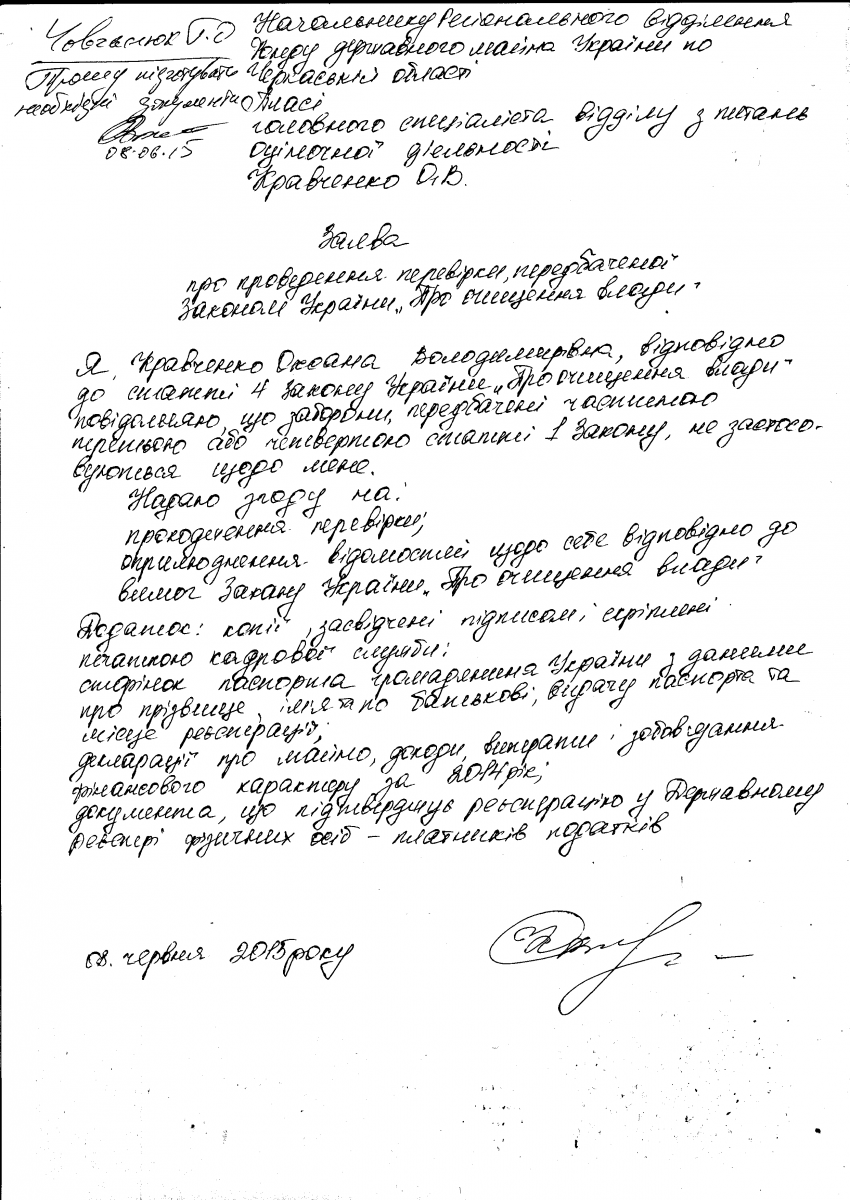 Човганюк Г.О
Прошу підготувати
необхідні документи
08.06.15
Начальнику Регіонального відділення
Фонду державного майна України по
Черкаській області
Власі
головного спеціаліста відділу з питань
оціночної діяльності
Кравченко О.В.
Заява
про проведення перевірки, передбаченої
Законом України „Про очищення влади"
Я, Кравченко Оксана Володимирівна, відповідно
до статті 4 Закону України „Про очищення влади"
повідомляю, що заборони, передбачені частиною
третьою або четвертою статті 1 Закону, не застосо-
вуються щодо мене.
Надаю згоду на:
проходження перевірки;
оприлюднення відомостей щодо себе відповідно до
вимог Закону України „Про очищення влади"
Додаток: копії, засвідчені підписом і скріплені
печаткою кадрової служби:
сторінок паспорта громадянина України з даними
про прізвище, ім'я та по батькові, видачу паспорта та
місце реєстрації;
декларації про майно, доходи, витрати і зобов'язання
фінансового характеру за 2014 рік;
документа, що підтверджує реєстрацію у Державному
реєстрі фізичних осіб – платників податків
08. червня 2015 року